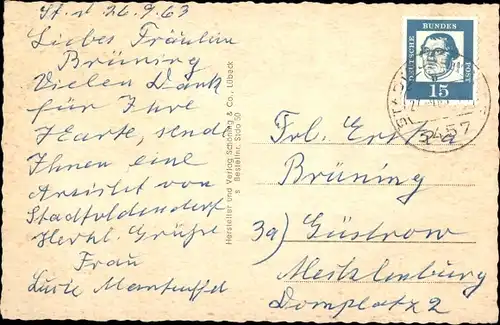 St. d 26.9.63
Liebes Fräulein
Brüning
Vielen Dank
für Ihre
Karte, sende
Ihnen eine
Ansicht von
Stadtoldendorf
Herzl. Grüße
Frau
Lucie Manteuffel
Hersteller und Verlag Schöning & Co., Lübeck
S Bestellnr. Stdo 50
DEUTSCHE
BUNDES
POST
15
3457
Frl. Erika
Brüning
3a) Güstrow
Mecklenburg
Domplatz 2